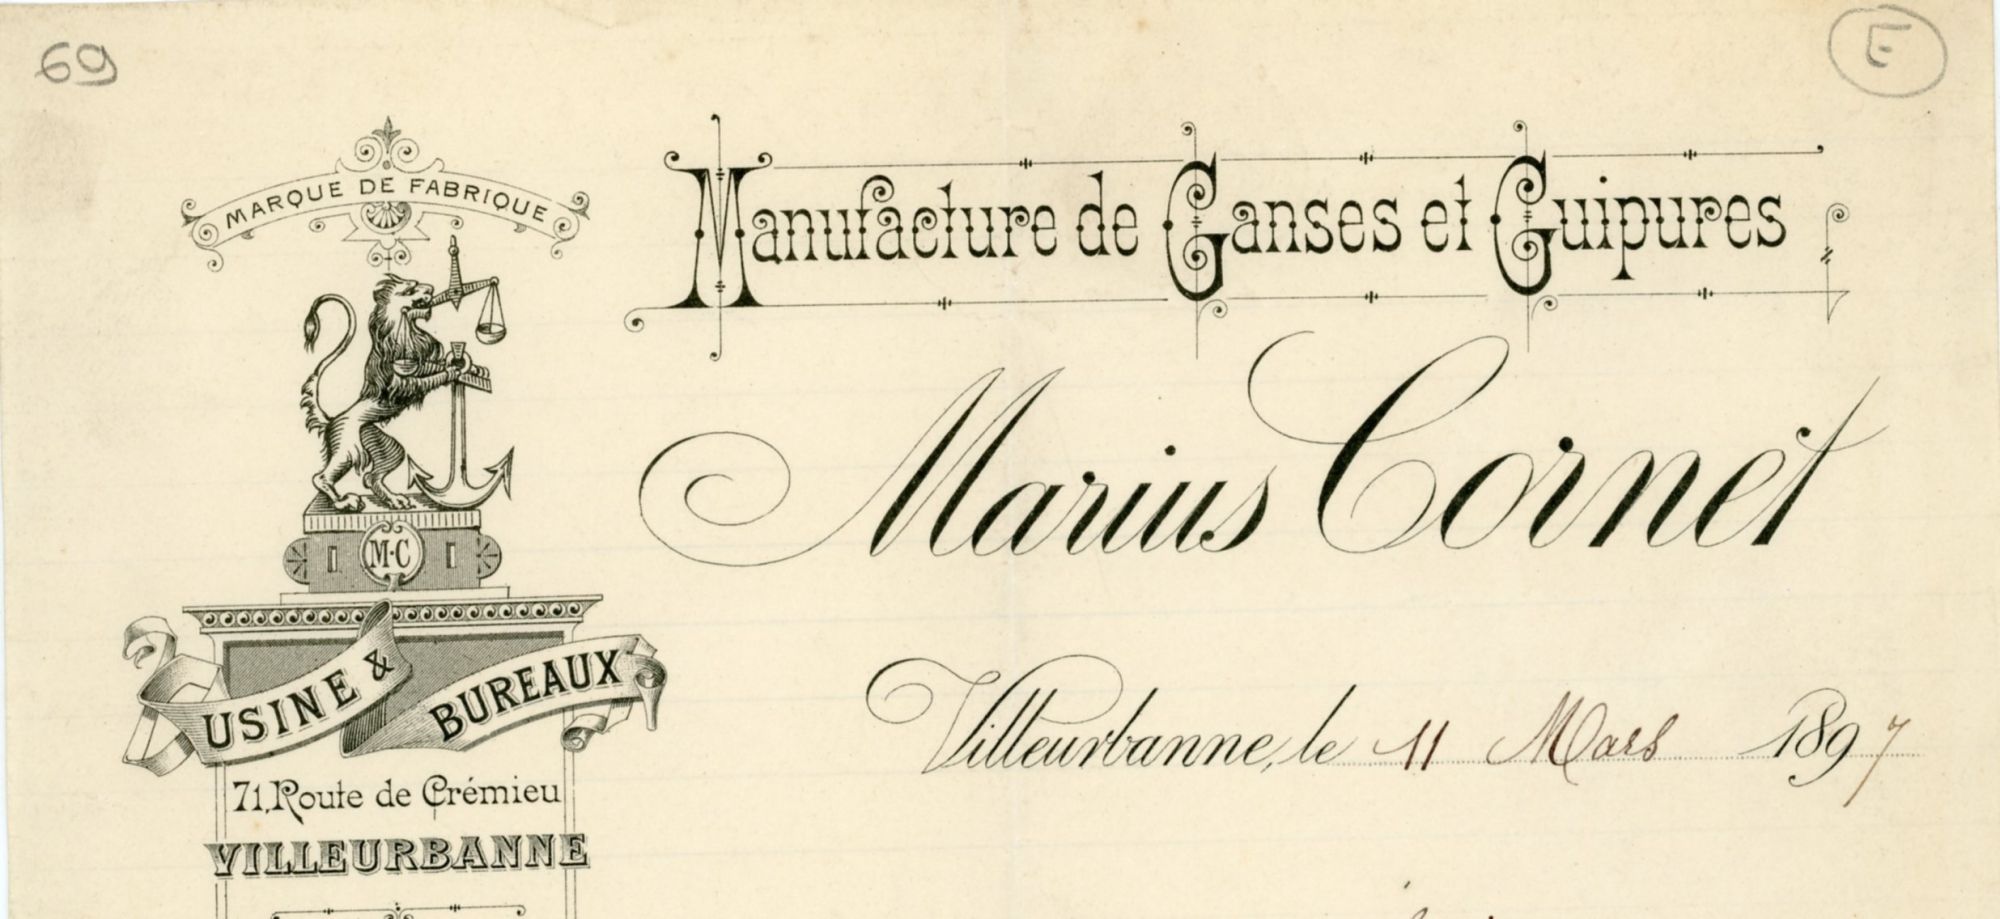 69
E
MARQUE DE FABRIQUE
Manufacture de Ganses et Guipures
Marius Cornet
M·C
USINE & BUREAUX
Villeurbanne, le 11 Mars 1897
71, Route de Crémieu
VILLEURBANNE